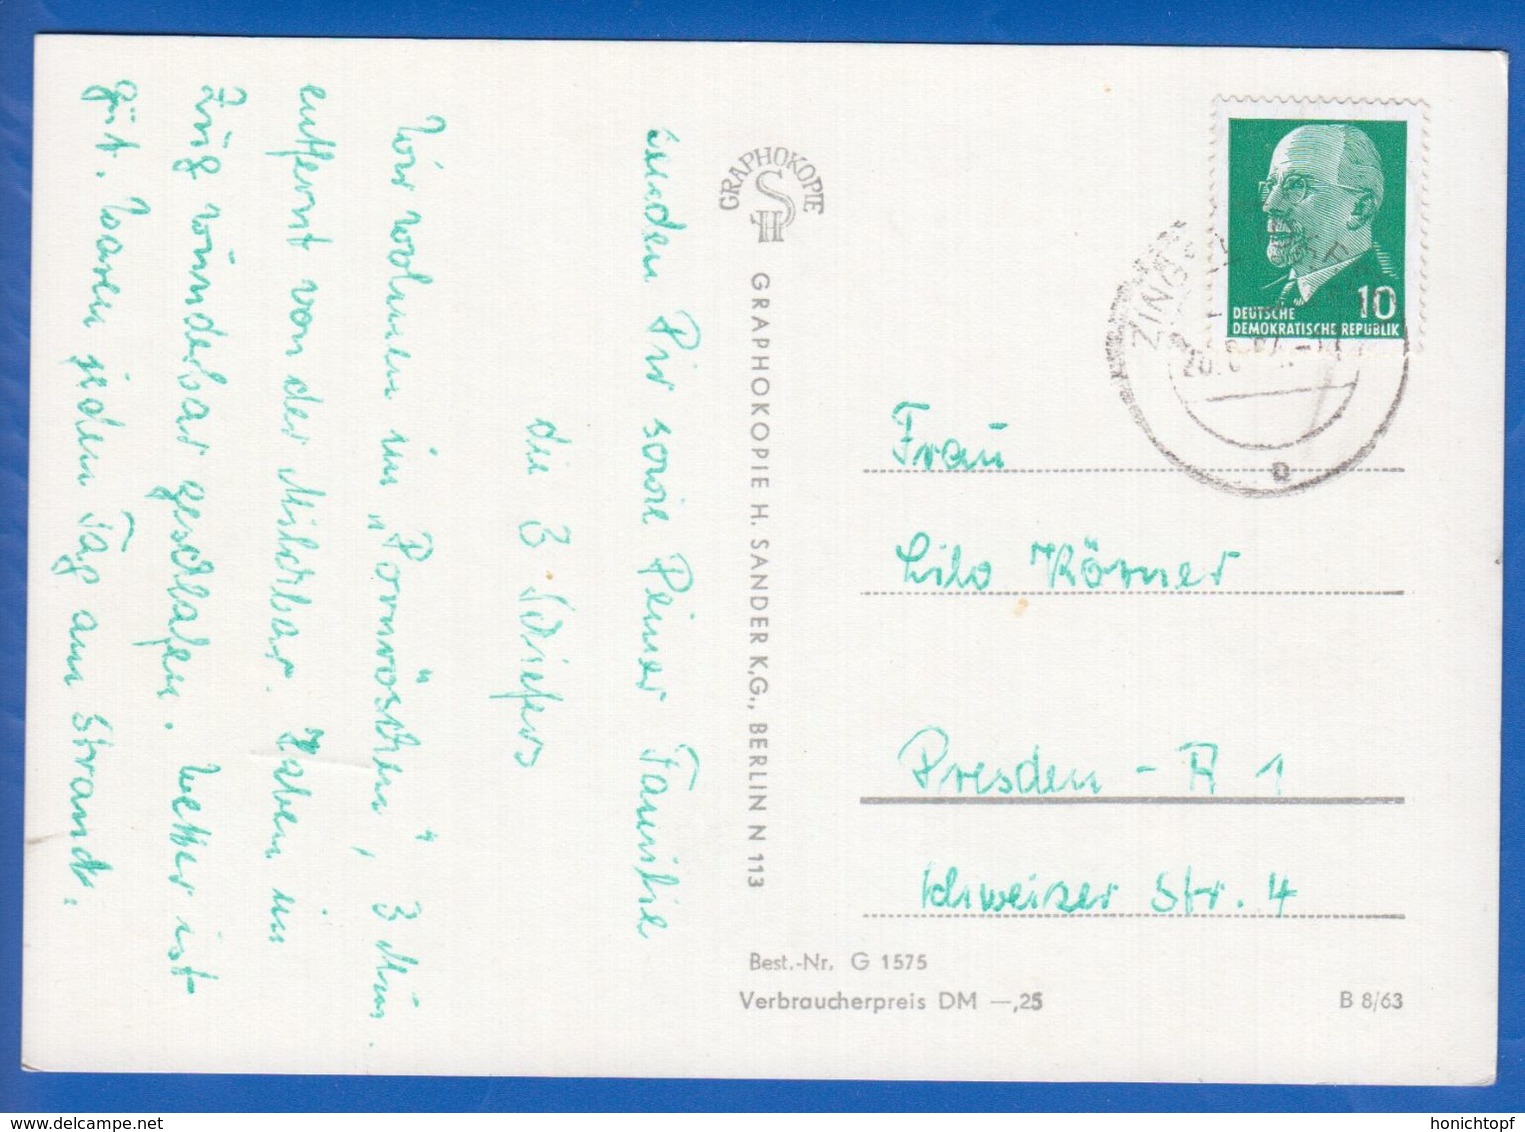 senden Dir sowie Deiner Familie
die 3 Schiefers
Wir wohnen im „Dornröschen“, 3 Min.
entfernt von der Milchbar. Haben im
Zug wunderbar geschlafen. Wetter ist
gut. Waren jeden Tag am Strand.
GRAPHOKOPIE
H S
GRAPHOKOPIE H. SANDER K.G., BERLIN N 113
10
DEUTSCHE
DEMOKRATISCHE REPUBLIK
ZINGST
20.
Frau
Lilo Körner
Dresden - A 1
Schweizer Str. 4
Best.-Nr. G 1575
Verbraucherpreis DM —,25
B 8/63
honichtopf